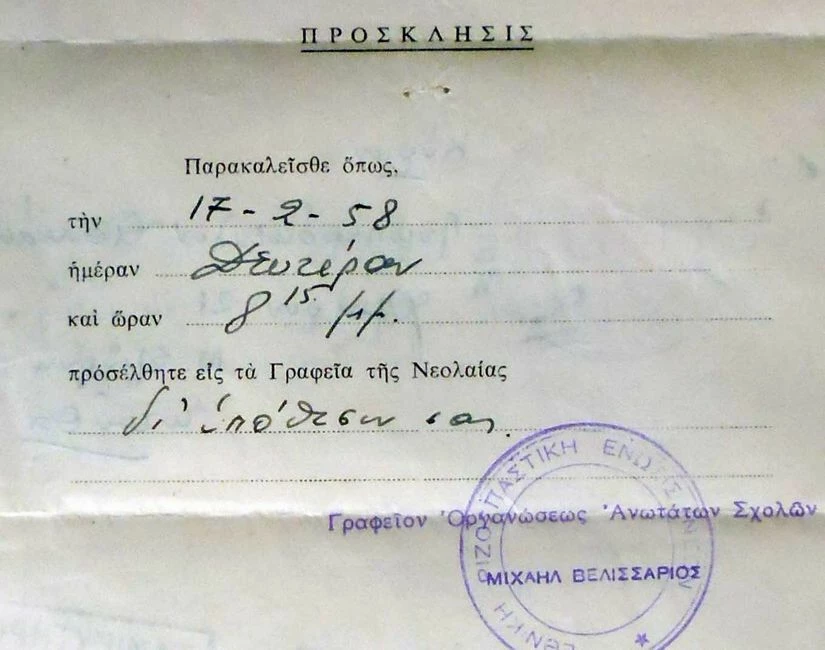 ΠΡΟΣΚΛΗΣΙΣ
Παρακαλεῖσθε ὅπως,
τὴν 17-2-58
ἡμέραν Δευτέραν
καὶ ὥραν 8 15 μμ.
πρόσέλθητε εἰς τὰ Γραφεῖα τῆς Νεολαίας
δι' ὑπόθεσιν σας.
Γραφεῖον Ὀργανώσεως Ἀνωτάτων Σχολῶν
ΡΙΖΟΣΠΑΣΤΙΚΗ ΕΝΩΣΙΣ ΝΕΩΝ
ΜΙΧΑΗΛ ΒΕΛΙΣΣΑΡΙΟΣ